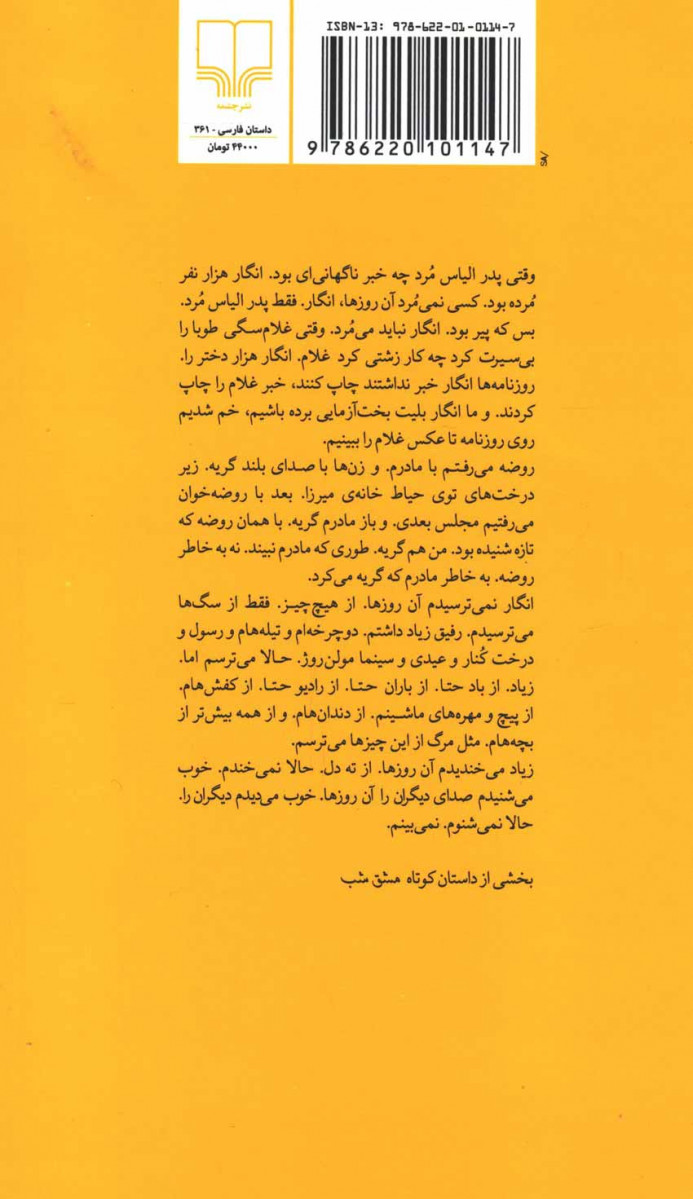 ISBN-13: 978-622-01-0114-7
نشرچشمه
داستان فارسی - ۳۶۱
۴۴۰۰۰ تومان
9 786220 101147
SA/
وقتی پدر الیاس مُرد چه خبر ناگهانی‌ای بود. انگار هزار نفر
مُرده بود. کسی نمی‌مُرد آن روزها، انگار. فقط پدر الیاس مُرد.
بس که پیر بود. انگار نباید می‌مُرد. وقتی غلام‌سگی طوبا را
بی‌سیرت کرد چه کار زشتی کرد غلام. انگار هزار دختر را.
روزنامه‌ها انگار خبر نداشتند چاپ کنند، خبر غلام را چاپ
کردند. و ما انگار بلیت بخت‌آزمایی برده باشیم، خم شدیم
روی روزنامه تا عکس غلام را ببینیم.
روضه می‌رفتم با مادرم. و زن‌ها با صدای بلند گریه. زیر
درخت‌های توی حیاط خانه‌ی میرزا. بعد با روضه‌خوان
می‌رفتیم مجلس بعدی. و باز مادرم گریه. با همان روضه که
تازه شنیده بود. من هم گریه. طوری که مادرم نبیند. نه به خاطر
روضه. به خاطر مادرم که گریه می‌کرد.
انگار نمی‌ترسیدم آن روزها. از هیچ‌چیز. فقط از سگ‌ها
می‌ترسیدم. رفیق زیاد داشتم. دوچرخه‌ام و تیله‌هام و رسول و
درخت کُنار و عیدی و سینما مولن‌روژ. حالا می‌ترسم اما.
زیاد. از باد حتا. از باران حتا. از رادیو حتا. از کفش‌هام.
از پیچ و مهره‌های ماشینم. از دندان‌هام. و از همه بیش‌تر از
بچه‌هام. مثل مرگ از این چیزها می‌ترسم.
زیاد می‌خندیدم آن روزها. از ته دل. حالا نمی‌خندم. خوب
می‌شنیدم صدای دیگران را آن روزها. خوب می‌دیدم دیگران را.
حالا نمی‌شنوم. نمی‌بینم.
بخشی از داستان کوتاه مشق شب